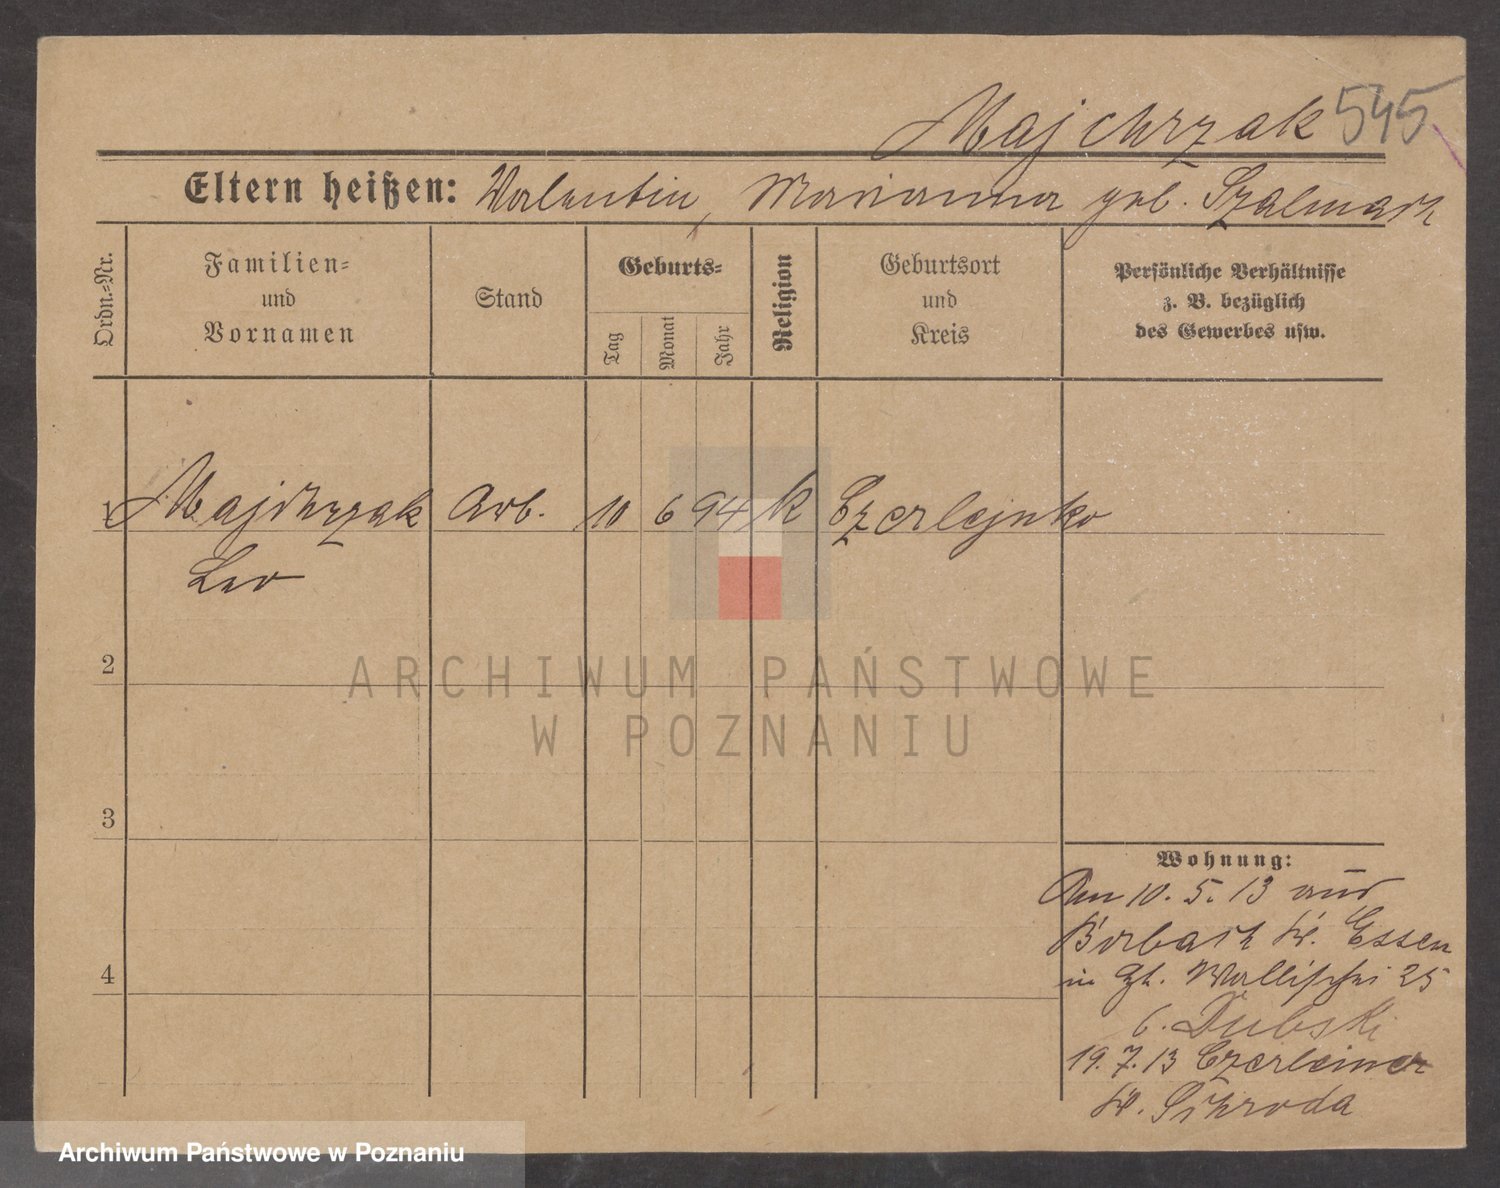 Majchrzak 545
Eltern heißen: Valentin, Marianna geb. Szalmach
Ordn.=Nr.
Familien=
und
Vornamen
Stand
Geburts=
Tag
Monat
Jahr
Religion
Geburtsort
und
Kreis
Persönliche Verhältnisse
z. B. bezüglich
des Gewerbes usw.
1 Majchrzak Arb. 10 6 94 K Czerlejnko
Leo
2
3
4
Wohnung:
Am 10. 5. 13 aus
Borbach Kr. Essen
in Wallischei 25
b. Dubski
19. 7. 13 Czerleino
Kr. Schroda
ARCHIWUM PAŃSTWOWE
W POZNANIU
Archiwum Państwowe w Poznaniu